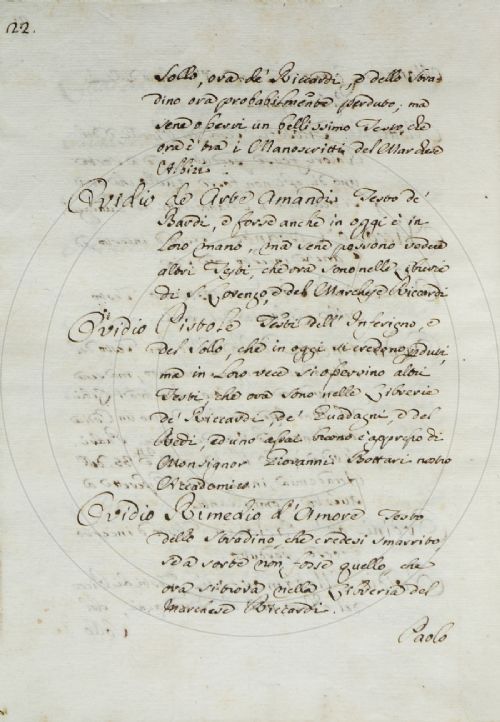 22.
Sollo, ora de' Riccardi, e dello Stra-
dino ora probabilmente perduto; ma
sene osservi un bellissimo Testo, che
ora è tra i Manoscritti del Marchese
Albizi.
Ovidio de Arte Amandi. Testo de'
Bardi, e forse anche in oggi è in
loro mano, ma sene possono vedere
altri Testi, che ora sono nelle Librerie
di S. Lorenzo, e del Marchese Riccardi
Ovidio Pistole Testi dell' Inferigno, e
del Sollo, che in oggi si credono perduti,
ma in loro vece si osservino altri
Testi, che ora sono nelle Librerie
de' Riccardi, de' Guadagni, e del
Redi, ed uno assai buono è appresso di
Monsignor Giovanni Bottari nostro
Accademico
Ovidio Rimedio d'Amore Testo
dello Stradino, che credesi smarrito,
se a sorte non fosse quello, che
ora si trova nella Libreria del
Marchese Riccardi.
Paolo